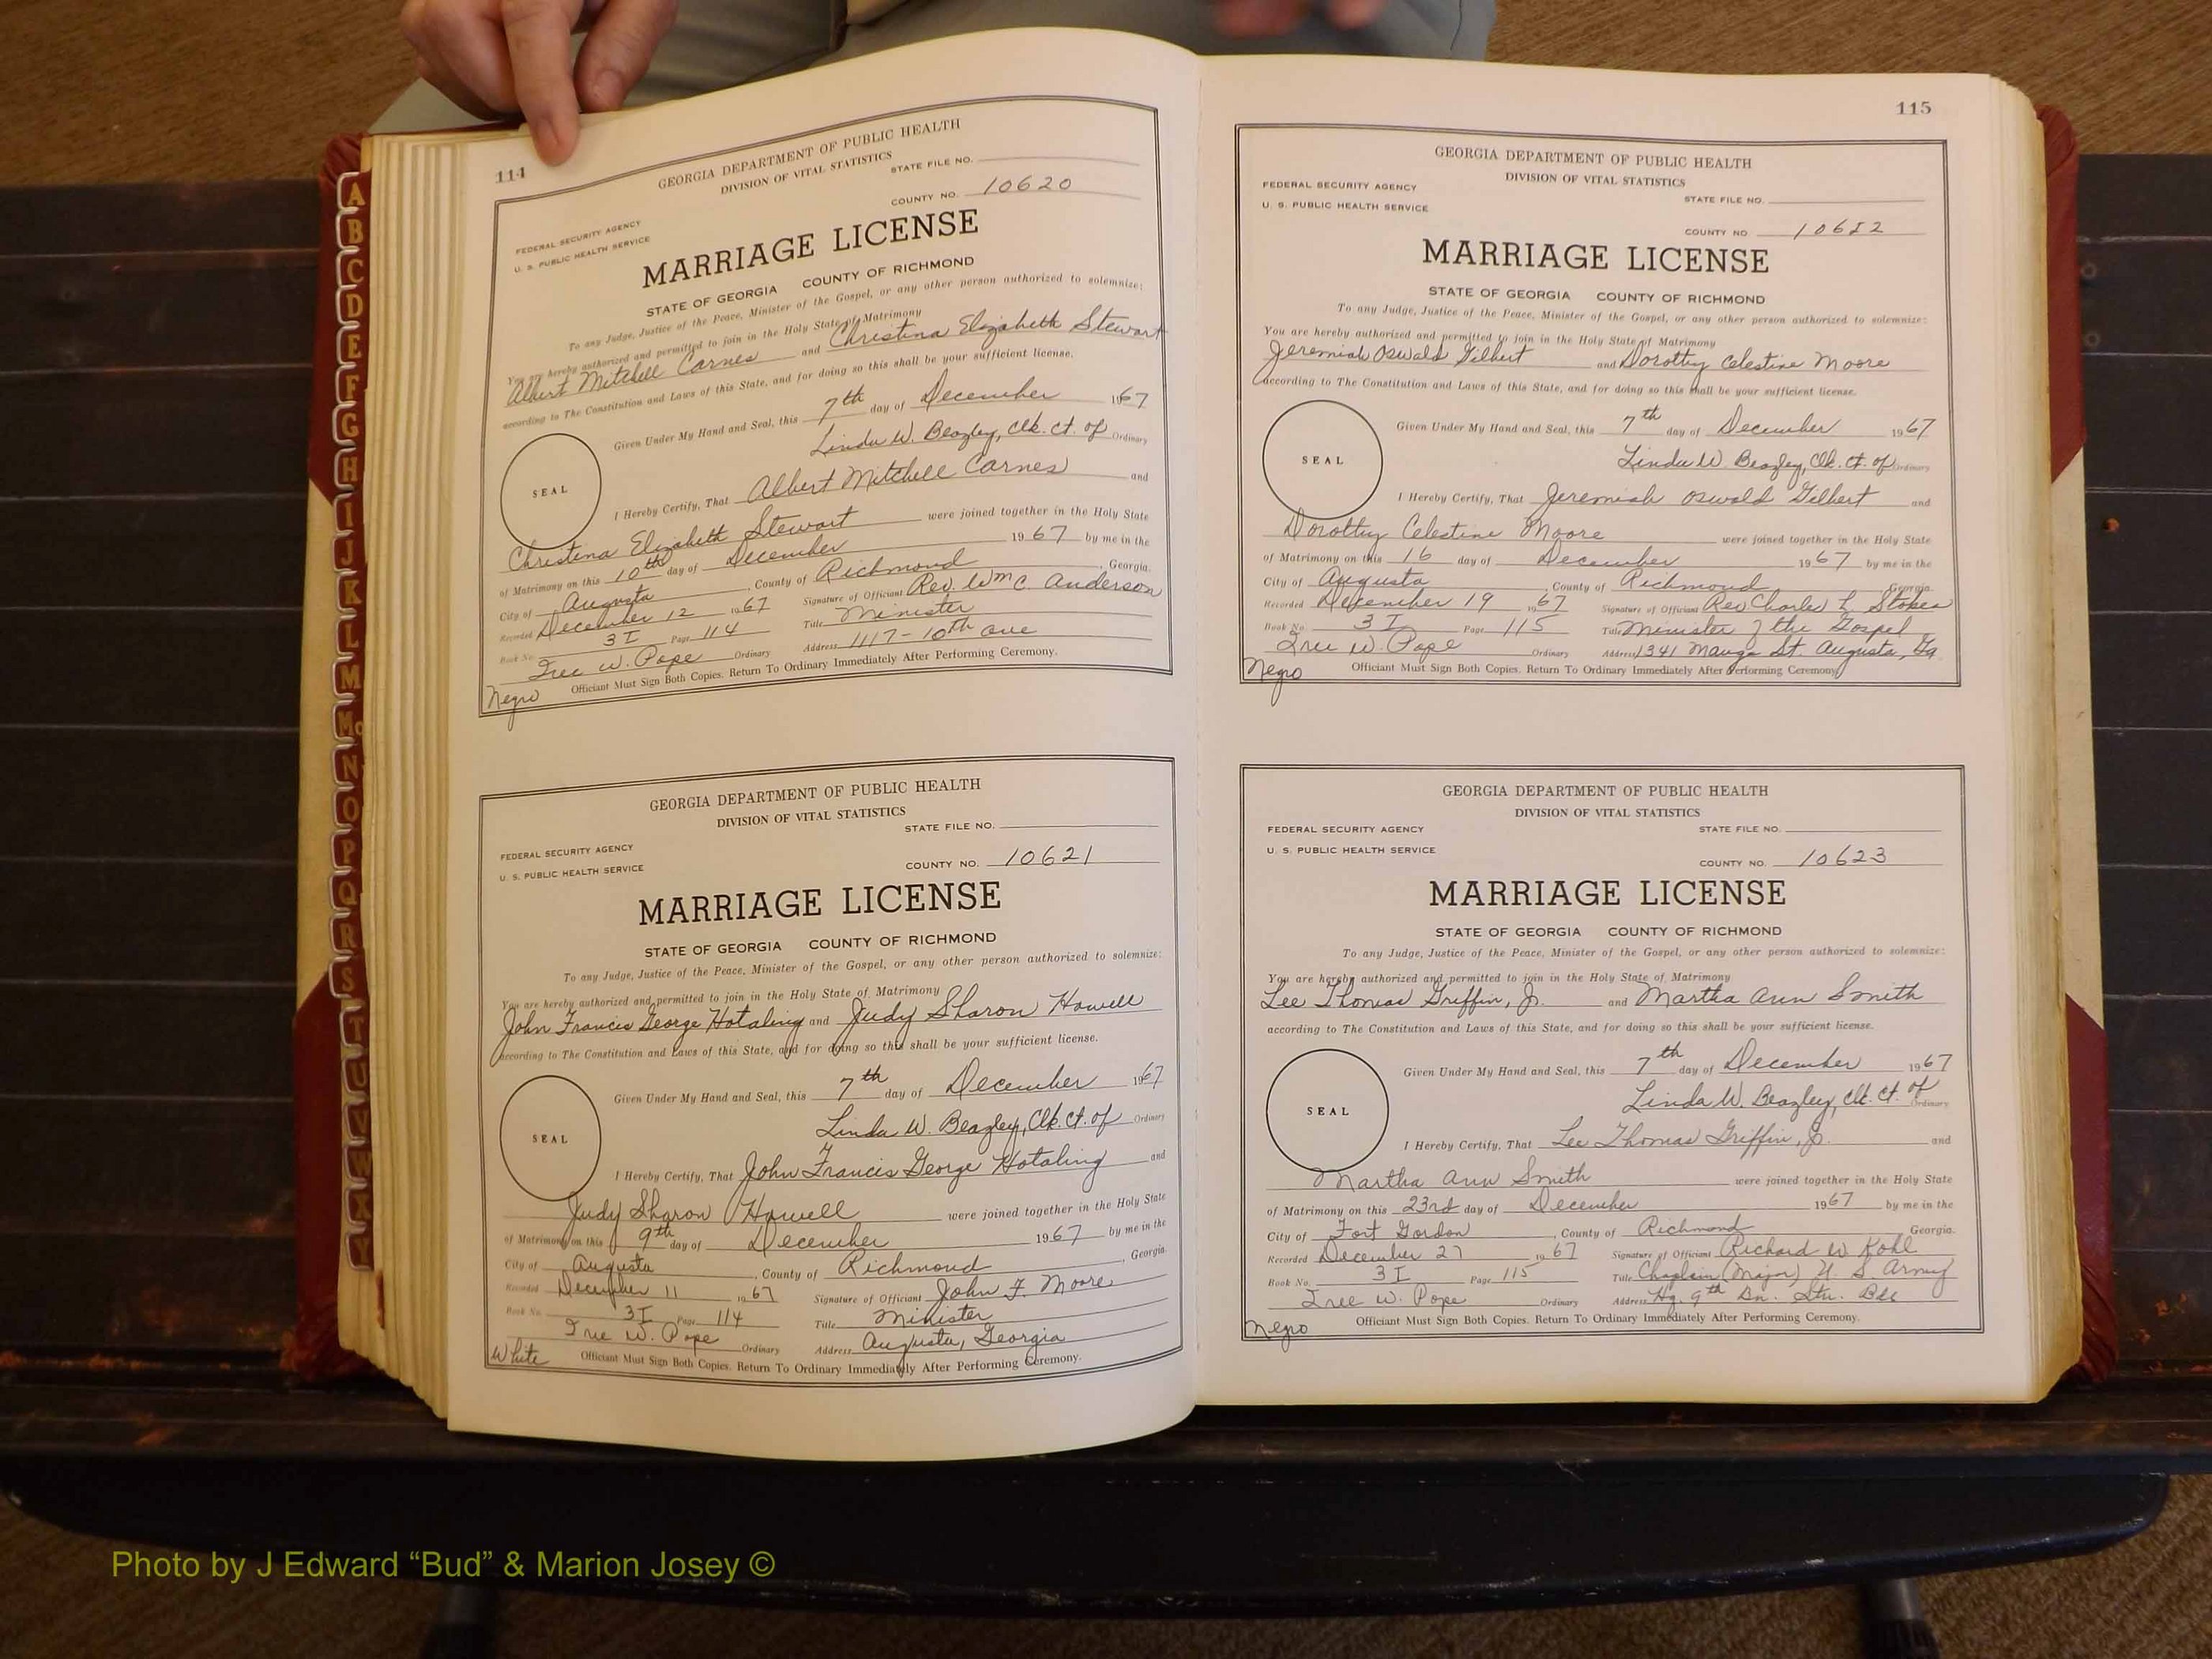 114
GEORGIA DEPARTMENT OF PUBLIC HEALTH
DIVISION OF VITAL STATISTICS
STATE FILE NO.
COUNTY NO. 10620
FEDERAL SECURITY AGENCY
U. S. PUBLIC HEALTH SERVICE
MARRIAGE LICENSE
STATE OF GEORGIA COUNTY OF RICHMOND
To any Judge, Justice of the Peace, Minister of the Gospel, or any other person authorized to solemnize:
You are hereby authorized and permitted to join in the Holy State of Matrimony
Albert Mitchell Carnes and Christina Elizabeth Stewart
according to The Constitution and Laws of this State, and for doing so this shall be your sufficient license.
Given Under My Hand and Seal, this 7th day of December 1967
Linda W. Beazley, Clk. Ct. of Ordinary
SEAL
I Hereby Certify, That Albert Mitchell Carnes and
Christina Elizabeth Stewart were joined together in the Holy State
of Matrimony on this 10th day of December 1967 by me in the
City of Augusta, County of Richmond, Georgia.
Recorded December 12 1967 Signature of Officiant Rev. Wm C. Anderson
Book No. 3 I Page 114 Title Minister
W. Pope Ordinary Address 1117 - 10th Ave
Officiant Must Sign Both Copies. Return To Ordinary Immediately After Performing Ceremony.
Negro
GEORGIA DEPARTMENT OF PUBLIC HEALTH
DIVISION OF VITAL STATISTICS
STATE FILE NO.
FEDERAL SECURITY AGENCY
U. S. PUBLIC HEALTH SERVICE
COUNTY NO. 10621
MARRIAGE LICENSE
STATE OF GEORGIA COUNTY OF RICHMOND
To any Judge, Justice of the Peace, Minister of the Gospel, or any other person authorized to solemnize:
You are hereby authorized and permitted to join in the Holy State of Matrimony
John Francis George Hotaling and Judy Sharon Howell
according to The Constitution and Laws of this State, and for doing so this shall be your sufficient license.
Given Under My Hand and Seal, this 7th day of December 1967
Linda W. Beazley, Clk. Ct. of Ordinary
SEAL
I Hereby Certify, That John Francis George Hotaling and
Judy Sharon Howell were joined together in the Holy State
of Matrimony on this 9th day of December 1967 by me in the
City of Augusta, County of Richmond, Georgia.
Recorded December 11 1967 Signature of Officiant John F. Moore
Book No. 3 I Page 114 Title Minister
W. Pope Ordinary Address Augusta, Georgia
White Officiant Must Sign Both Copies. Return To Ordinary Immediately After Performing Ceremony.
115
GEORGIA DEPARTMENT OF PUBLIC HEALTH
DIVISION OF VITAL STATISTICS
FEDERAL SECURITY AGENCY
U. S. PUBLIC HEALTH SERVICE
STATE FILE NO.
COUNTY NO
MARRIAGE LICENSE
STATE OF GEORGIA COUNTY OF RICHMOND
To any Judge, Justice of the Peace, Minister of the Gospel, or any other person authorized to solemnize:
You are hereby authorized and permitted to join in the Holy State of Matrimony
Jeremiah Oswald Gilbert and Dorothy Celestine Moore
according to The Constitution and Laws of this State, and for doing so this shall be your sufficient license.
Given Under My Hand and Seal, this 7th day of December 1967
Linda W Beazley, Clk. Ct. of Ordinary
SEAL
I Hereby Certify, That Jeremiah Oswald Gilbert and
Dorothy Celestine Moore were joined together in the Holy State
of Matrimony on this 16 day of December 1967 by me in the
City of Augusta, County of Richmond, Georgia.
Recorded December 19 1967 Signature of Officiant Rev Charles L Stokes
Book No. 3 I Page 115 Title Minister of the Gospel
W. Pope Ordinary Address 1341 St. Augusta, Ga.
Negro Officiant Must Sign Both Copies. Return To Ordinary Immediately After Performing Ceremony
GEORGIA DEPARTMENT OF PUBLIC HEALTH
DIVISION OF VITAL STATISTICS
FEDERAL SECURITY AGENCY
U. S. PUBLIC HEALTH SERVICE
STATE FILE NO.
COUNTY NO. 10623
MARRIAGE LICENSE
STATE OF GEORGIA COUNTY OF RICHMOND
To any Judge, Justice of the Peace, Minister of the Gospel, or any other person authorized to solemnize:
You are hereby authorized and permitted to join in the Holy State of Matrimony
Lee Thomas Griffin, Jr. and Martha Ann Smith
according to The Constitution and Laws of this State, and for doing so this shall be your sufficient license.
Given Under My Hand and Seal, this 7th day of December 1967
Linda W. Beazley, Clk. Ct. of Ordinary
SEAL
I Hereby Certify, That Lee Thomas Griffin, Jr. and
Martha Ann Smith were joined together in the Holy State
of Matrimony on this 23rd day of December 1967 by me in the
City of Fort Gordon, County of Richmond, Georgia.
Recorded December 27 1967 Signature of Officiant Richard W Kohl
Book No. 3 I Page 115 Title Chaplain (Major) U. S. Army
W. Pope Ordinary Address Hq. 9th Bn.
Negro Officiant Must Sign Both Copies. Return To Ordinary Immediately After Performing Ceremony.
A
B
C
D
E
F
G
H
I
J
K
L
M
Mc
N
O
P
Q
R
S
T
U
V
W
X
Y
Photo by J Edward “Bud” & Marion Josey ©